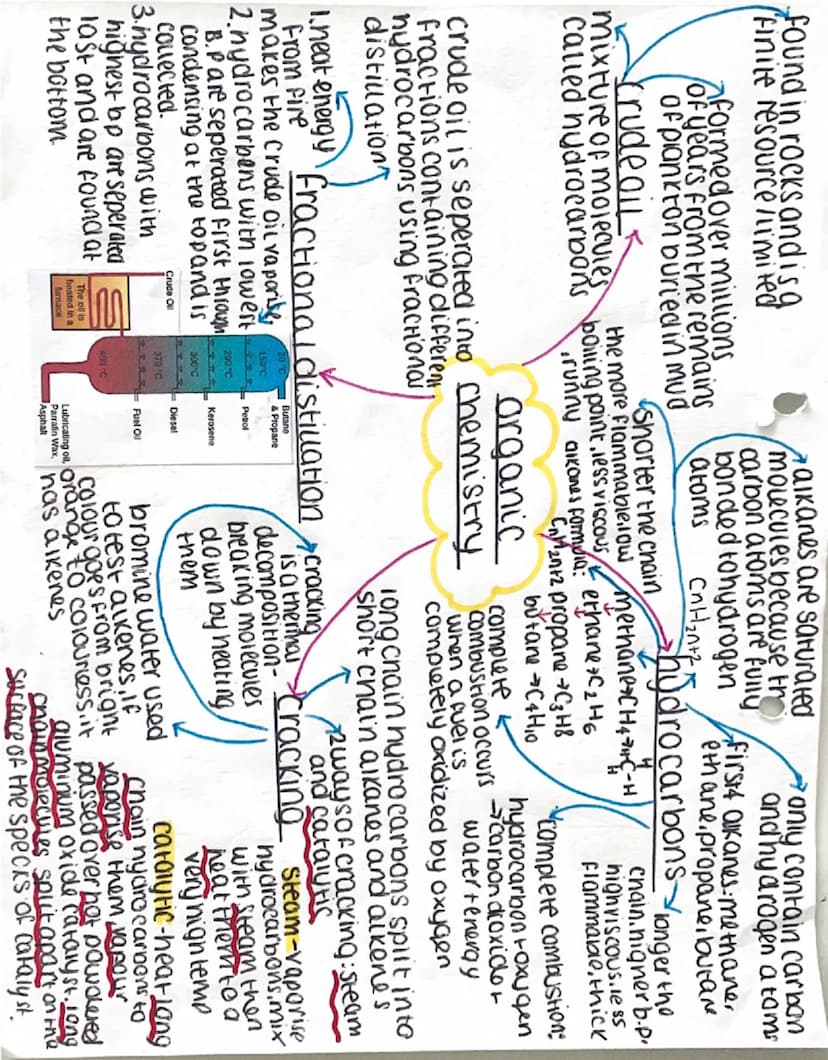 organic
chemistry
crude oil
found in rocks and is a
finite resource/limited
formed over millions
of years from the remains
of plankton buried in mud
mixture of molecules
called hydrocarbons
hydrocarbons
alkanes are saturated
molecules because the
carbon atoms are fully
bonded to hydrogen
atoms
CnH2n+2
only contain carbon
and hydrogen atoms
first 4 alkanes: methane,
ethane, propane, butane
longer the
chain, higher b.p,
high viscous, less
flammable, thick
shorter the chain
the more flammable, low
boiling point, less viscous
, runny
alkanes formula:
CnH2n+2
methane→CH4→H-C-H
H
H
ethane→C2H6
propane→C3H8
butane→C4H10
complete combustion:
hydrocarbon + oxygen
→carbon dioxide +
water + energy
complete
combustion occurs
when a fuel is
completely oxidized by oxygen
fractional distillation
crude oil is seperated into
fractions containing different
hydrocarbons using fractional
distillation
1. heat energy
from fire
makes the crude oil vaporise
2. hydrocarbons with lowest
B.P are seperated first through
condensing at the top and is
collected.
3. hydrocarbons with
highest bp are seperated
last and are found at
the bottom.
Crude Oil
The oil is
heated in a
furnace
20 °C
150°C
200 °C
300°C
370 °C
400 °C
Butane
& Propane
Petrol
Kerosene
Diesel
Fuel Oil
Lubricating oil,
Parrafin Wax,
Asphalt
cracking
long chain hydrocarbons split into
short chain alkanes and alkenes
2 ways of cracking: steam
and catalytic
steam - vaporise
hydrocarbons, mix
with steam then
heat them to a
very high temp
catalytic - heat long
chain hydrocarbons to
vaporise them, vapour
passed over hot powdered
aluminium oxide catalyst. long
chain molecules split apart on the
surface of the specks of catalyst.
cracking
is a thermal
decomposition -
breaking molecules
down by heating
them
bromine water used
to test alkenes, if
colour goes from bright
orange to colourless it
has alkenes